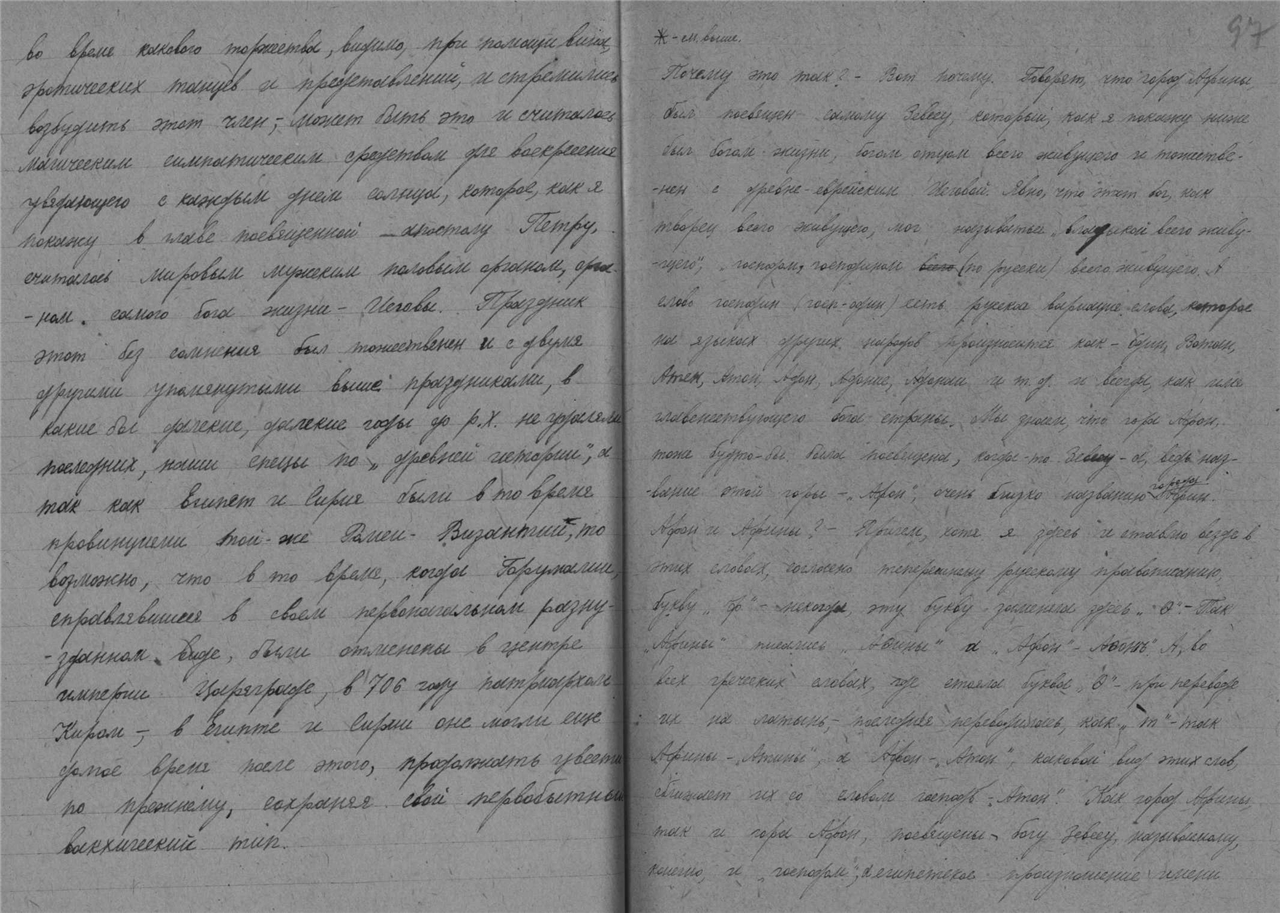 во время какового торжества, видимо, при помощи вина,
эротических танцев и представлений, и стремились
возбудить этот член, – может быть это и считалось
магическим симпатическим средством для воскресения
увядающего с каждым днем солнца, которое, как я
покажу в главе посвященной – апостолу Петру,
считалось мировым мужским половым органом, орга-
-ном самого бога жизни – Иеговы. Праздник
этот без сомнения был тожественен и с двумя
другими упомянутыми выше праздниками, в
какие бы далекие, далекие годы до р.х. не удаляли
последних, наши спецы по „древней истории", а
так как Египет и Сирия были в то время
провинциями той-же Ромеи-Византии, то
возможно, что в то время, когда
справлявшиеся в своем первоначальном разну-
-зданном виде, были отменены в центре
империи Цареграде, в 706 году патриархом
Киром –, в Египте и Сирии оне могли еще
долгое время после этого, продолжать цвести
по прежнему, сохраняя свой первобытный
вакхический тип.
97
Ж – см. выше.
Почему это так? – Вот почему. Говорят, что город Афины,
был посвещен самому Зевесу, который, как я покажу ниже
был богом жизни, богом отцом всего живущего и тожестве-
-нен с древне-еврейским Иеговой. Явно, что этот бог, как
творец всего живущего, мог называться „владыкой всего живу-
-щего", „господом, господином (по русски) всего живущего. А
слово господин (госп-один) есть русская вариация слова, которое
на языках других народов произносится как – Один, Вотан,
Атен, Атон, Адон, Адонис, Адонаи и т.д. и всегда, как имя
главенствующего бога страны. Мы знаем, что гора Афон,
тоже будто-бы была посвещена, когда-то Зевесу – а, ведь наз-
-вание этой горы – „Афон", очень близко названию города Афин.
Афон и Афины? – Причем, хотя я здесь и ставлю везде в
этих словах, согласно теперешнему русскому правописанию,
букву „ф" – некогда, эту букву заменяла здесь „Ѳ" – Так
„Афины" писались „Аѳины" а „Афон" – Аѳонъ". А, во
всех греческих словах, где стояла буква „Ѳ" – при переводе
их на латынь – последняя переводилась, как „т" – так
Афины – „Атины", а Афон – „Атон", каковой вид этих слов,
сближает их со словом господь „Атон". Как город Афины,
так и гора Афон, посвещены богу Зевесу, называемому,
конечно, и „господом", а египетское произношение имени